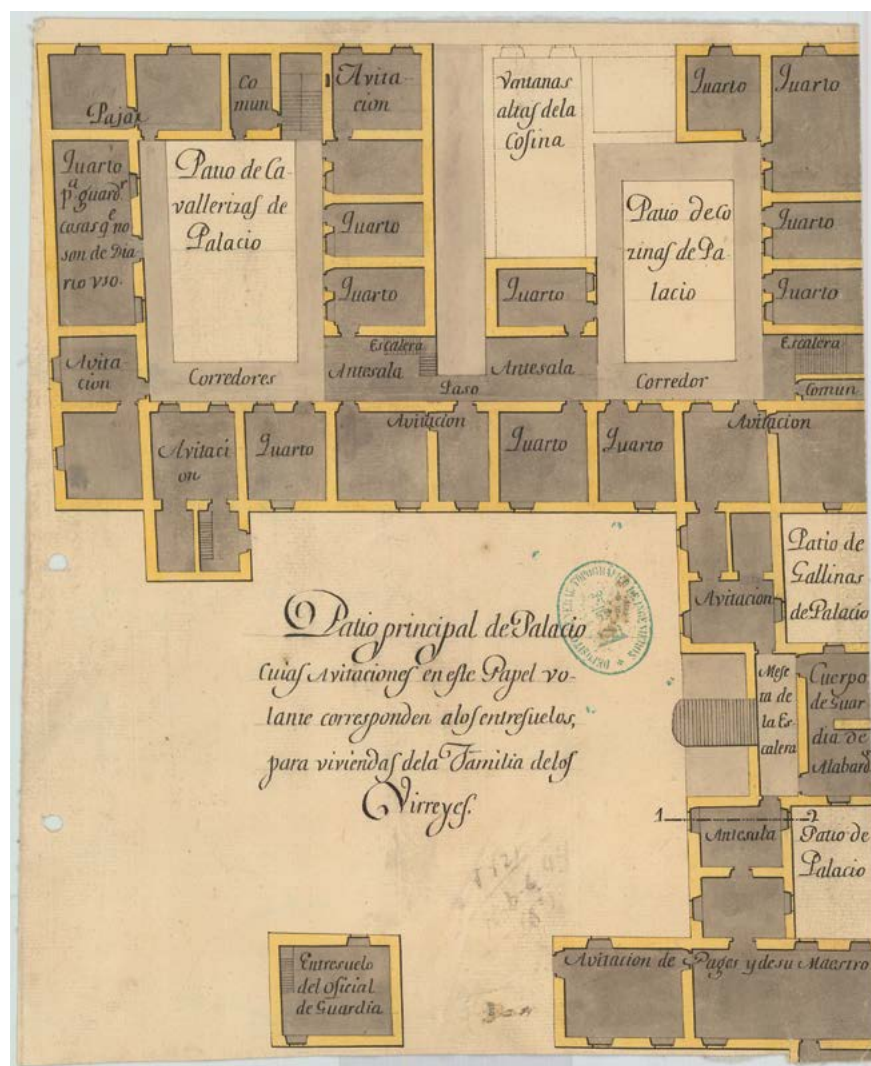 Pajar
Co
mun
Avita-
cion
Ventanas
altas dela
Cosina
Quarto
Quarto
Quarto
pa. guardr.
cosas qe. no
son de Dia
rio vso.
Patio de Ca-
vallerizas de
Palacio
Quarto
Quarto
Quarto
Patio de Co
zinas de Pa-
lacio
Quarto
Quarto
Avita
cion
Corredores
Escalera
Antesala
Paso
Antesala
Corredor
Escalera
Comun
Avitaci
on
Quarto
Avitacion
Quarto
Quarto
Avitacion
Patio de
Gallinas
de Palacio
Avitacion
Patio principal de Palacio
Cuias Avitaciones en este Papel vo-
lante corresponden alos entresuelos,
para viviendas dela Familia delos
Virreyes.
Mese
ta de
la Es
calera
Cuerpo
de Guar
dia de
Alabards
1 2
Antesala
Patio de
Palacio
Entresuelo
del Oficial
de Guardia
Avitacion de Pages y de su Maestro